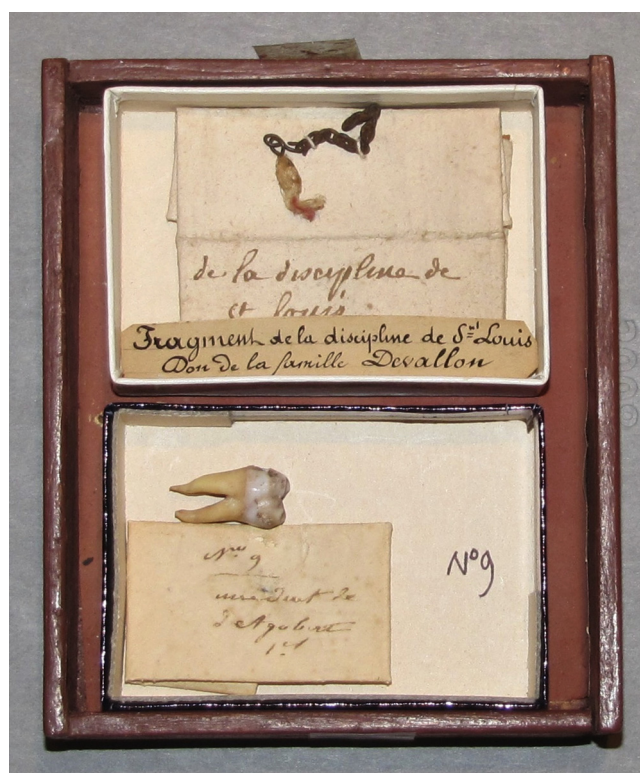 de la discipline de
st louis.
Fragment de la discipline de St Louis
Don de la famille Devallon
Nro 9
une dent de
d'Agobert
1er
N°9